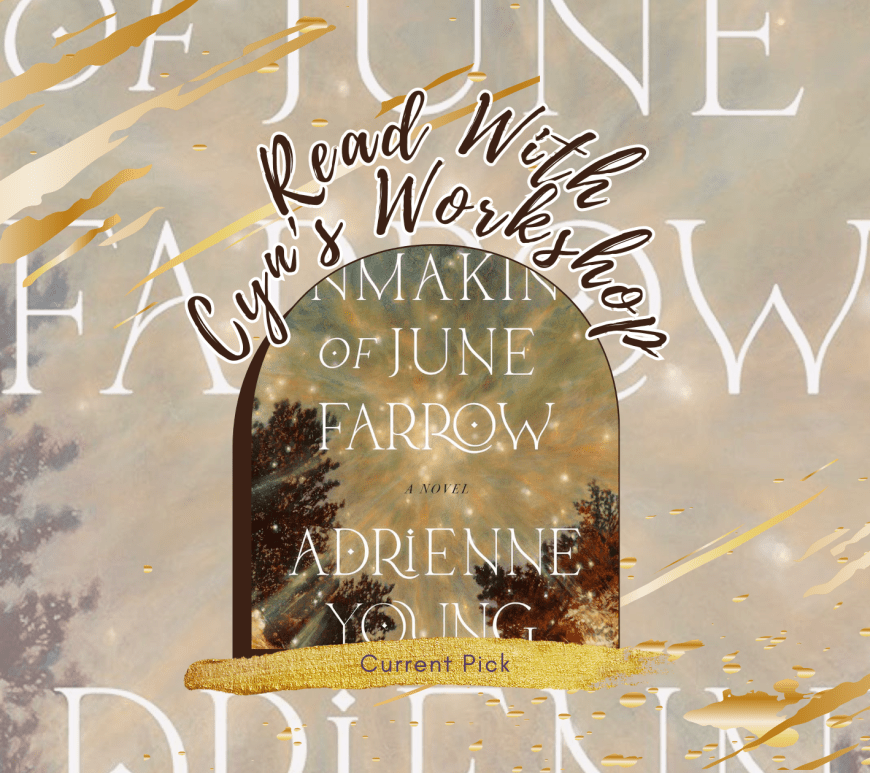 OF JUNE
FARROW
Read With
Cyn's Workshop
NMAKIN
OF JUNE
FARROW
A NOVEL
ADRiENNE
YOUNG
Current Pick
ADRiENN